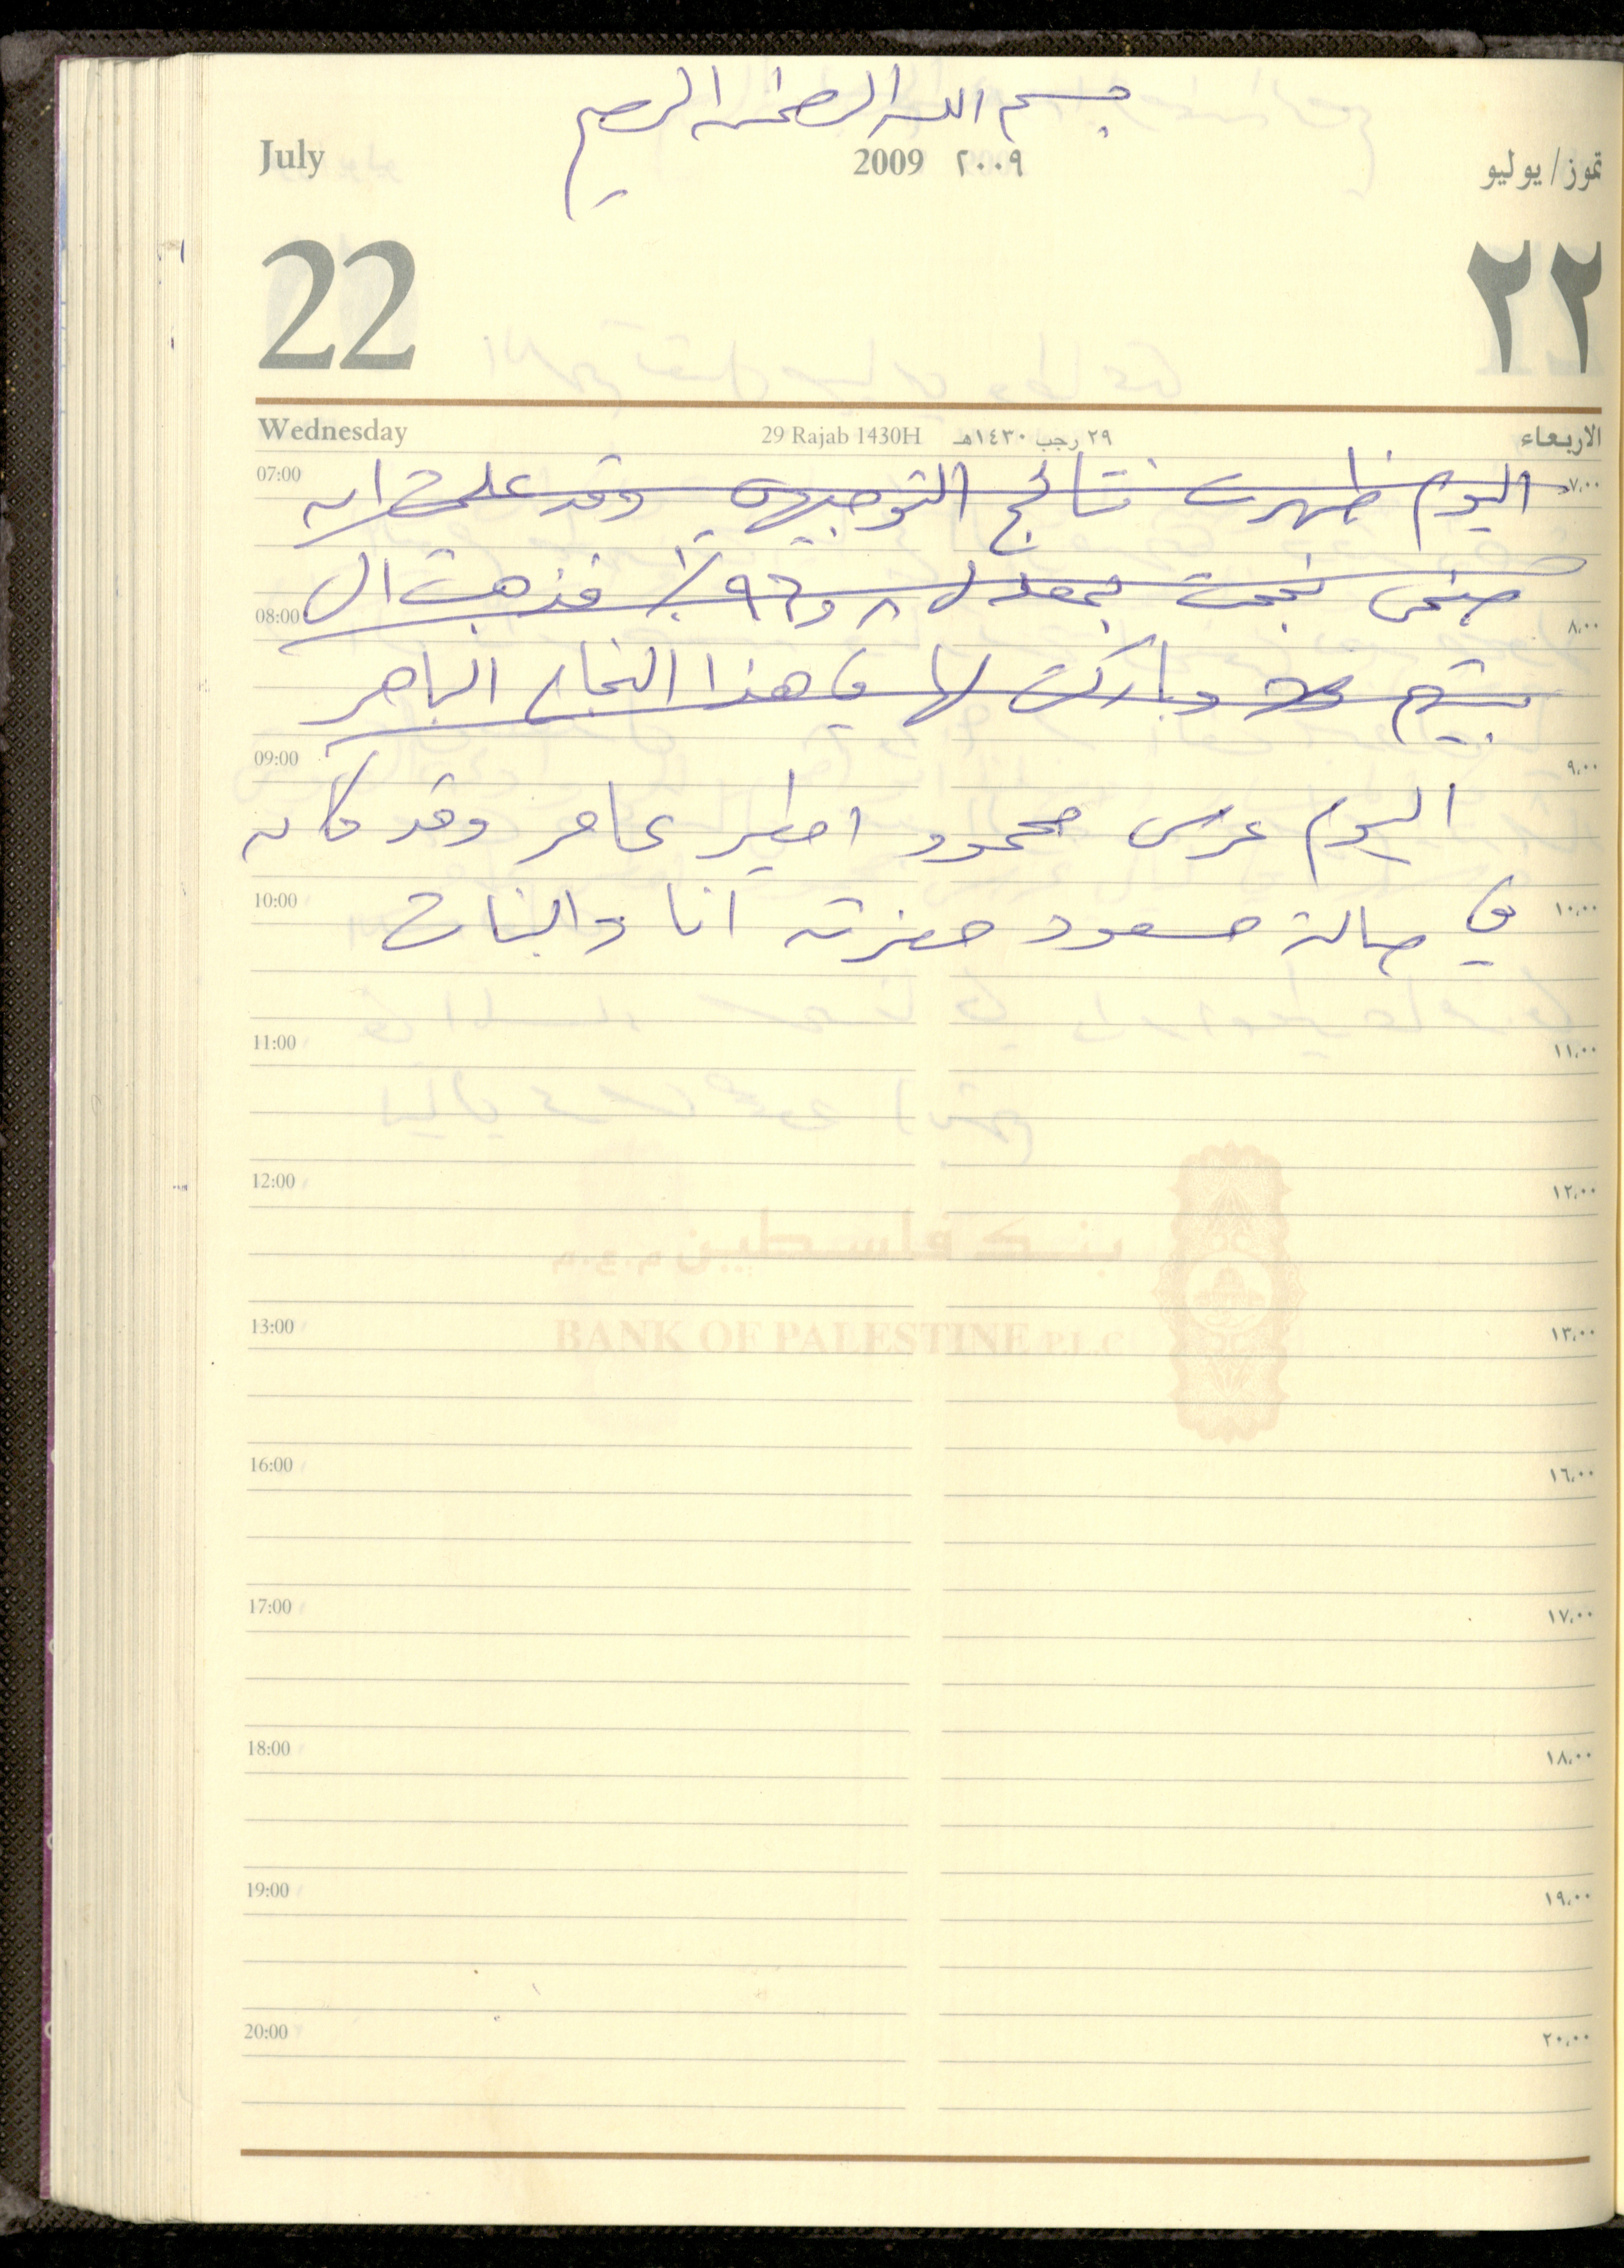 بسم الله الرحمن الرحيم
July 2009 ٢٠٠٩ تموز/يوليو
22 ٢٢
Wednesday 29 Rajab 1430H ٢٩ رجب ١٤٣٠هـ الاربعاء
07:00 اليوم ظهرت نتائج التوجيهي وقد علمت ان ٧,٠٠
ضحى نجحت بمعدل ٩٦و٨٪ فذهبت الى
08:00 ٨,٠٠
بيتهم وباركت لها في هذا النجاح الباهر
09:00 ٩,٠٠
اليوم عرس محمود اطير عامر وقد كان
10:00 في صالة مسعود حضرته انا والبنات ١٠,٠٠
11:00 ١١,٠٠
12:00 ١٢,٠٠
بنك فلسطين م.ع.م
13:00 BANK OF PALESTINE P.L.C ١٣,٠٠
16:00 ١٦,٠٠
17:00 ١٧,٠٠
18:00 ١٨,٠٠
19:00 ١٩,٠٠
20:00 ٢٠,٠٠